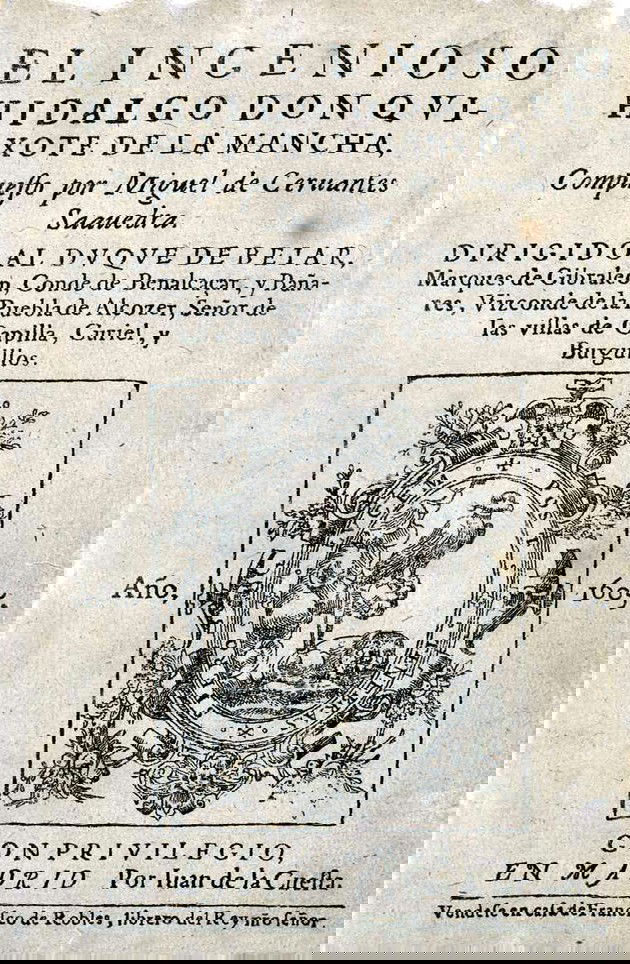 EL INGENIOSO
HIDALGO DON QVI-
XOTE DE LA MANCHA,
Compuesto por Miguel de Ceruantes
Saauedra.
DIRIGIDO AL DVQVE DE BEIAR,
Marques de Gibraleon, Conde de Benalcaçar, y Baña-
res, Vizconde de la Puebla de Alcozer, Señor de
las villas de Capilla, Curiel, y
Burguillos.
Año, 1605.
CON PRIVILEGIO,
EN MADRID Por Iuan de la Cuesta.
Vendese en casa de Francisco de Robles, librero del Rey nro señor.